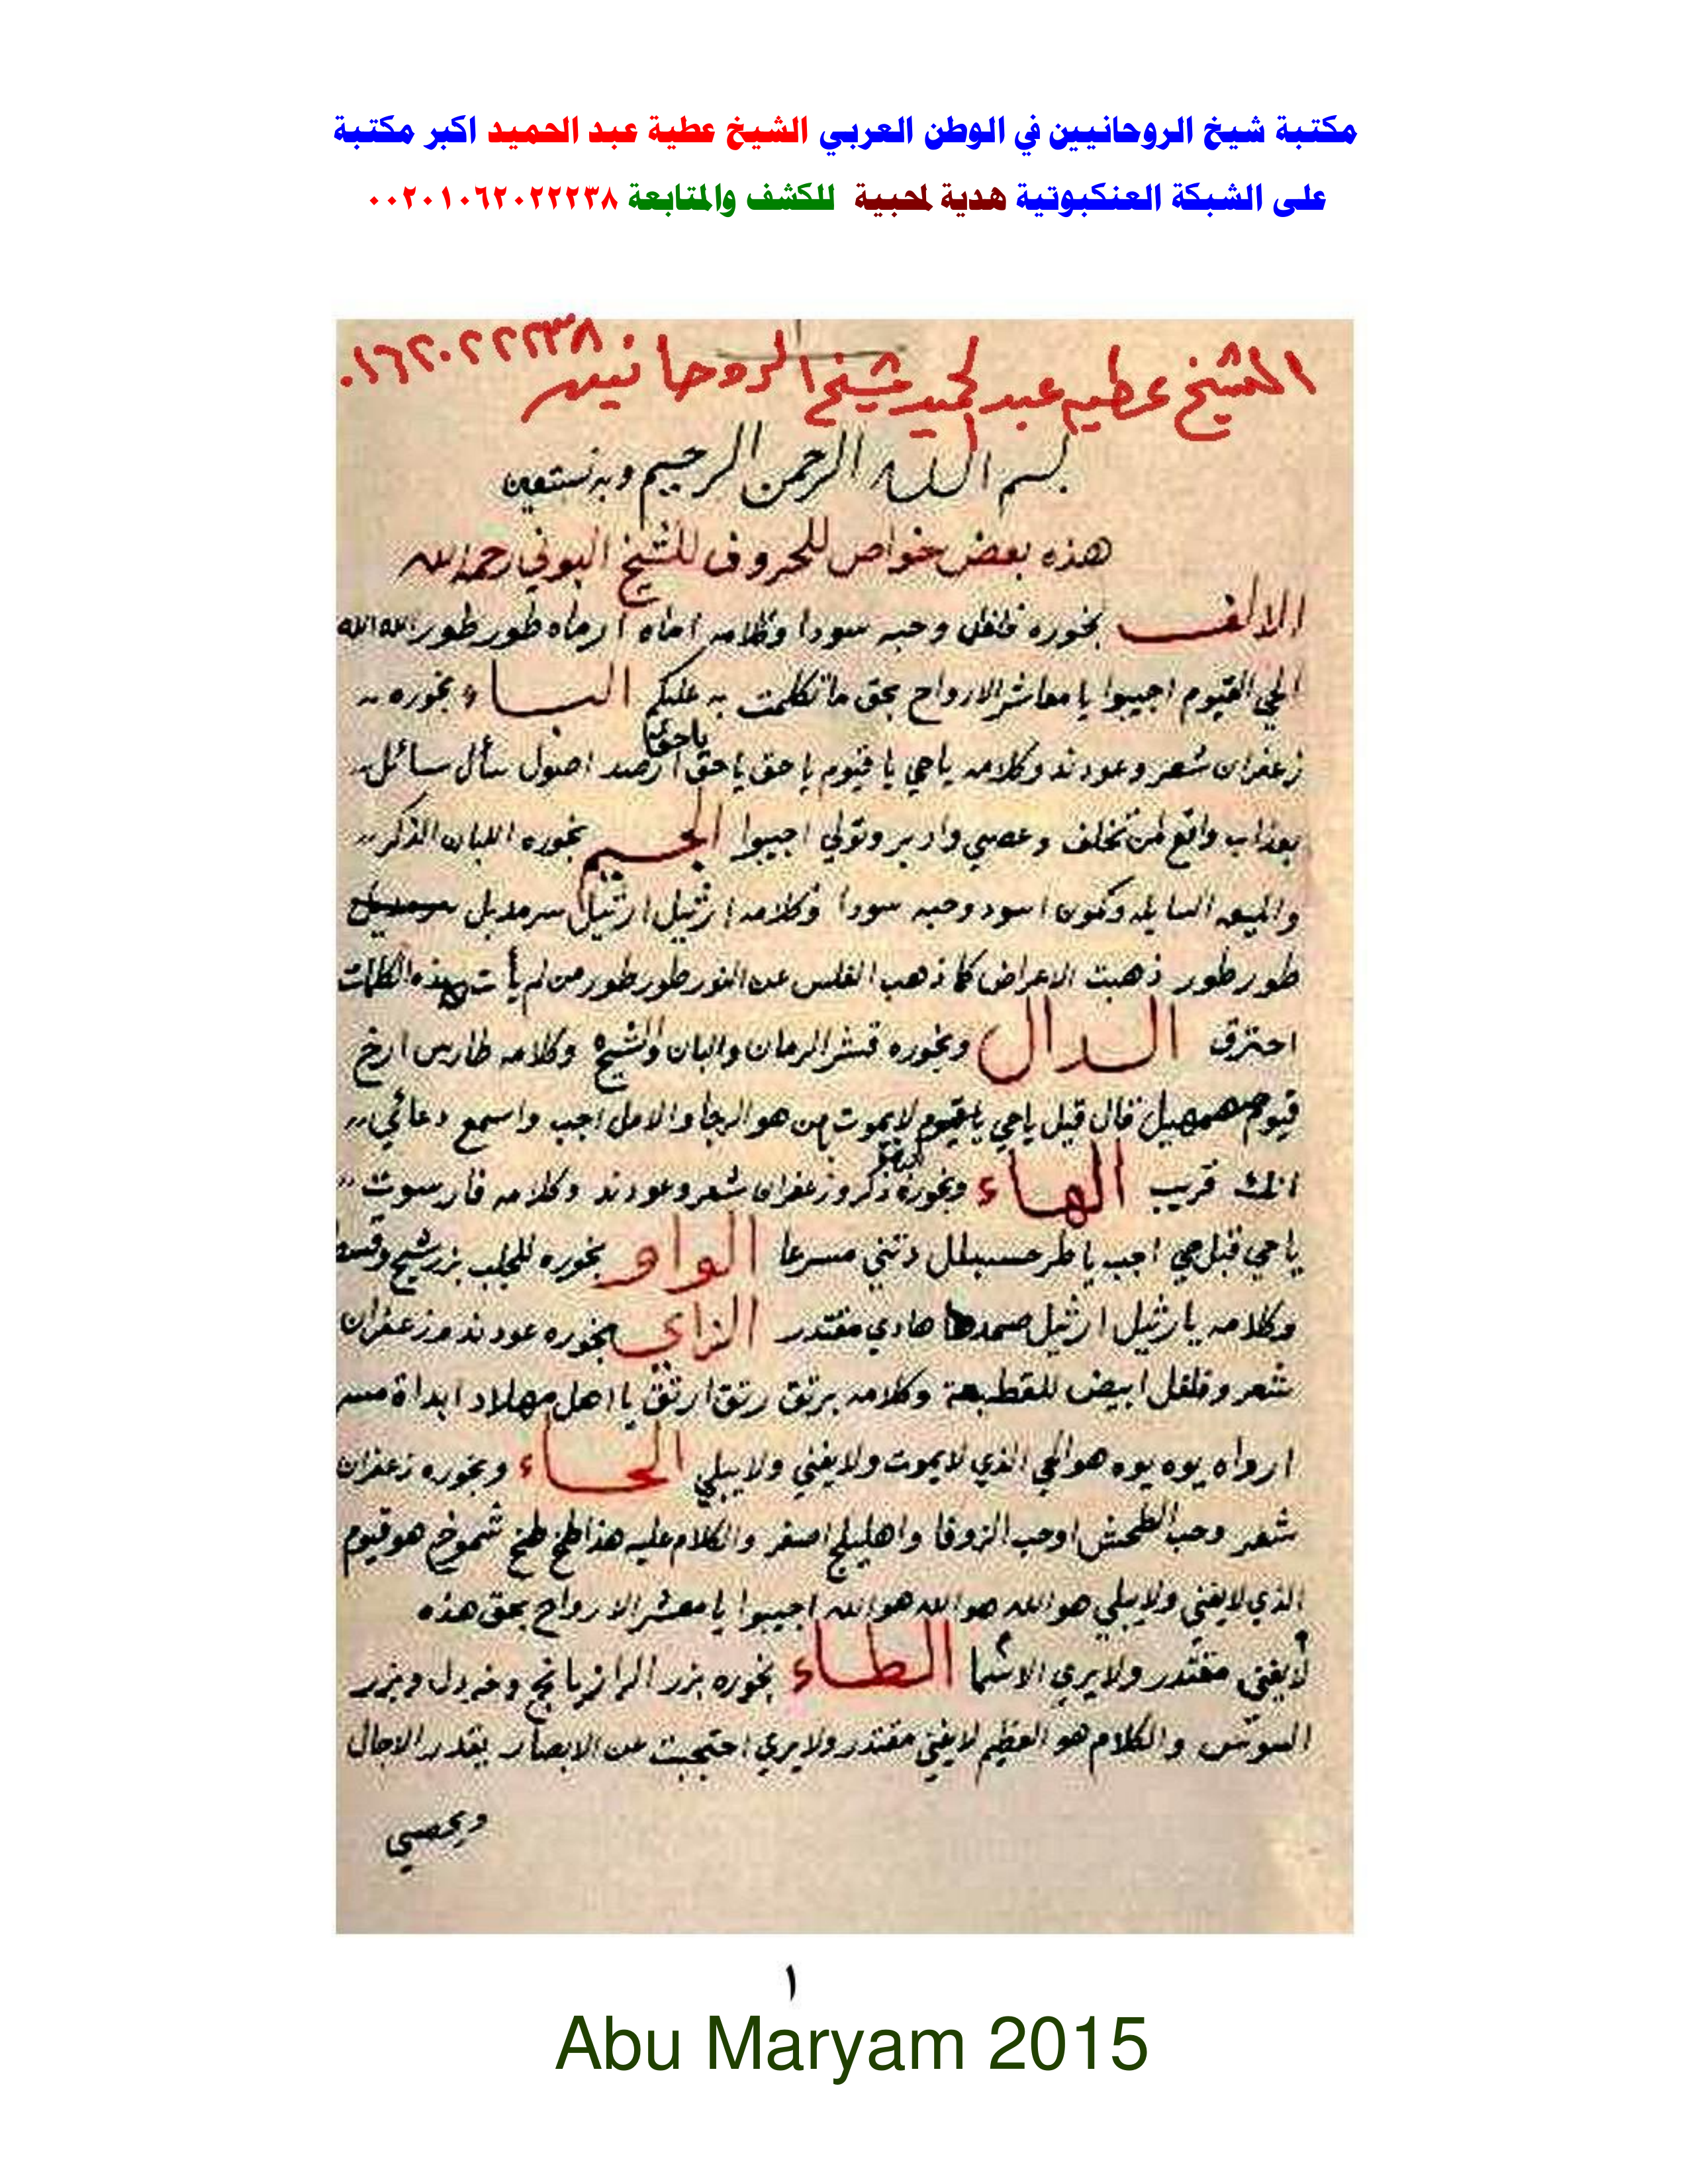 مكتبة شيخ الروحانيين في الوطن العربي الشيخ عطية عبد الحميد اكبر مكتبة
على الشبكة العنكبوتية هدية لمحبية للكشف والمتابعة ٠٠٢٠١٠٦٢٠٢٢٢٣٨
الشيخ عطيه عبد الحميد شيخ الروحانيين ٠١٦٢٠٢٢٢٣٨
بسم الله الرحمن الرحيم وبه نستعين
هذه بعض خواص للحروف للشيخ البوني رحمه الله
الالف بخوره فلفل وحبه سودا وكلامه اماه ارماه طور طور الله الله
الحي القيوم اجيبوا يا معاشر الارواح بحق ما تكلمت به عليكم الباء بخوره
زعفران شعر وعود ند وكلامه ياحي يا قيوم يا حق يا حق يا حق اصول سأل سائل
بعذاب واقع لمن تخلف وعصي وادبر وتولي اجيبوا الجيم بخوره اللبان الذكر
والميعه السايله وكمون اسود وحبه سودا وكلامه ارثيل ارثيل سرمديل
طور طور ذهبت الاعراض كما ذهب الغلس عن النور طور طور من لم يأت بهذه الكلمات
احترق الدال وبخوره قشر الرمان والبان والشيح وكلامه طارس ارخ
قيوم قال قيل ياحي ياقيوم لا يموت من هو الرجا والامل اجب واسمع دعائي
انك قريب الهاء وبخوره ذكر وزعفران شعر وعود ند وكلامه فارسوت
يا حي قبل حي اجب يا دتني مسرعا الواو بخوره للجلب بزر شيح وقسط
وكلامه يا رثيل ارثيل هادي مقتدر الزاي بخوره عود ند وزعفران
شعر وفلفل ابيض للقطيعة وكلامه برتق رتق ارتق يا اهل مهلاد ابداة
ارواه يوه يوه هو الحي الذي لا يموت ولا يفني ولا يبلي الحاء وبخوره زعفران
شعر وحب الطحش اوحب الزوفا واهليلج اصفر والكلام عليه هذا طخ طخ شموخ هو قيوم
الذي لا يفني ولا يبلي هو الله هو الله هو الله اجيبوا يا معشر الارواح بحق هذه
لا يفني مقتدر ولا يري الاشيا الطاء بخوره بزر الرازيانج وخردل وبزر
السوس والكلام هو العظيم لا يفني مقتدر ولا يري احتجبت عن الابصار بقدر الاجال
ويحصي
١
Abu Maryam 2015